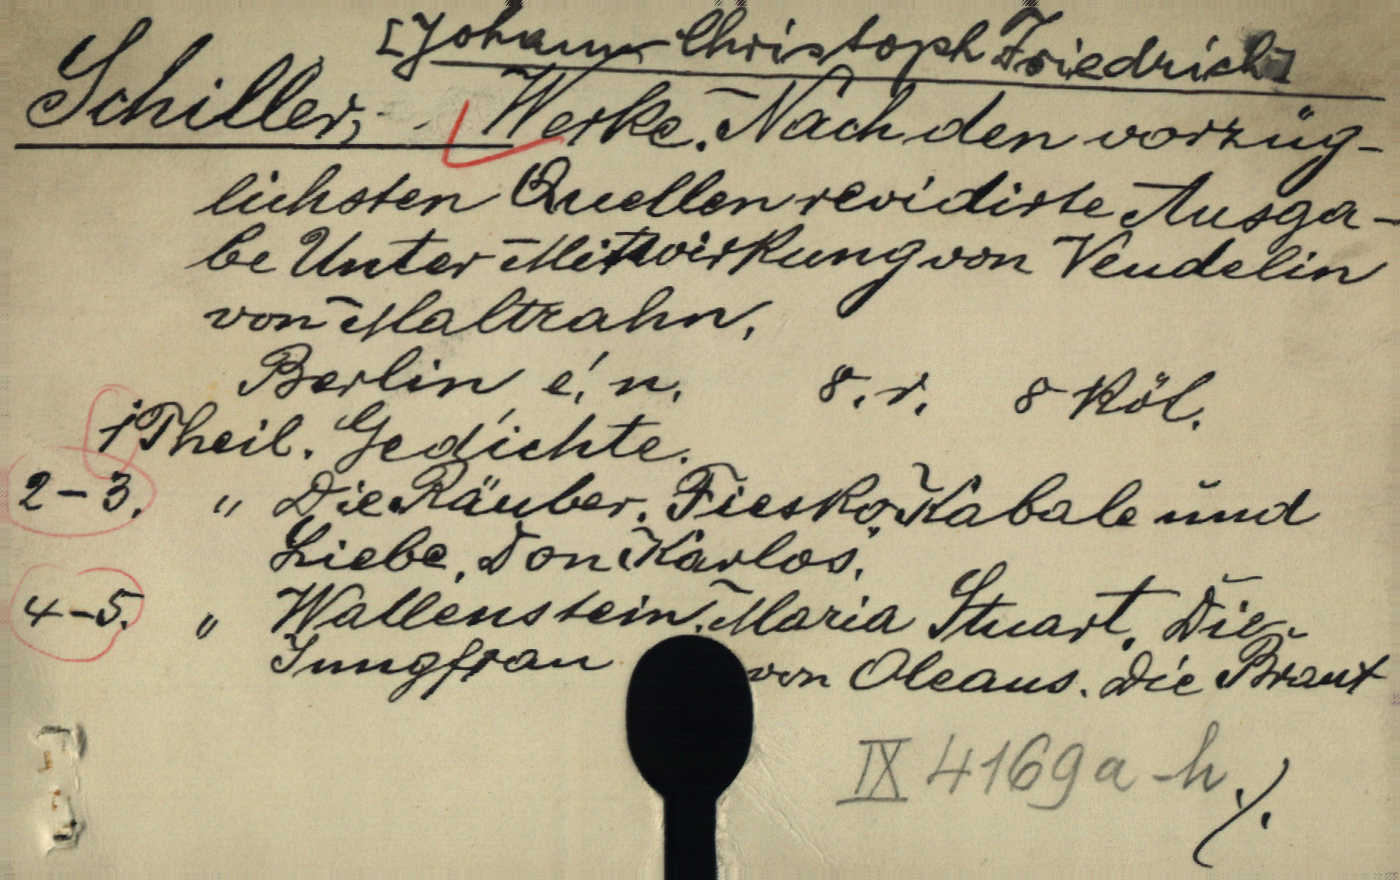 [Johann Christoph Friedrich]
Schiller, Werke. Nach den vorzüg-
lichsten Quellen revidirte Ausga-
be Unter Mitwirkung von Vendelin
von Maltzahn.
Berlin é. n. 8. r. 8 Köt.
1 Theil. Gedichte.
2-3. " Die Räuber. Fiesko. Kabale und
Liebe, Don Karlos.
4-5. " Wallenstein. Maria Stuart. Die
Jungfrau von Oleans. Die Braut
IX 4169a-h ./.